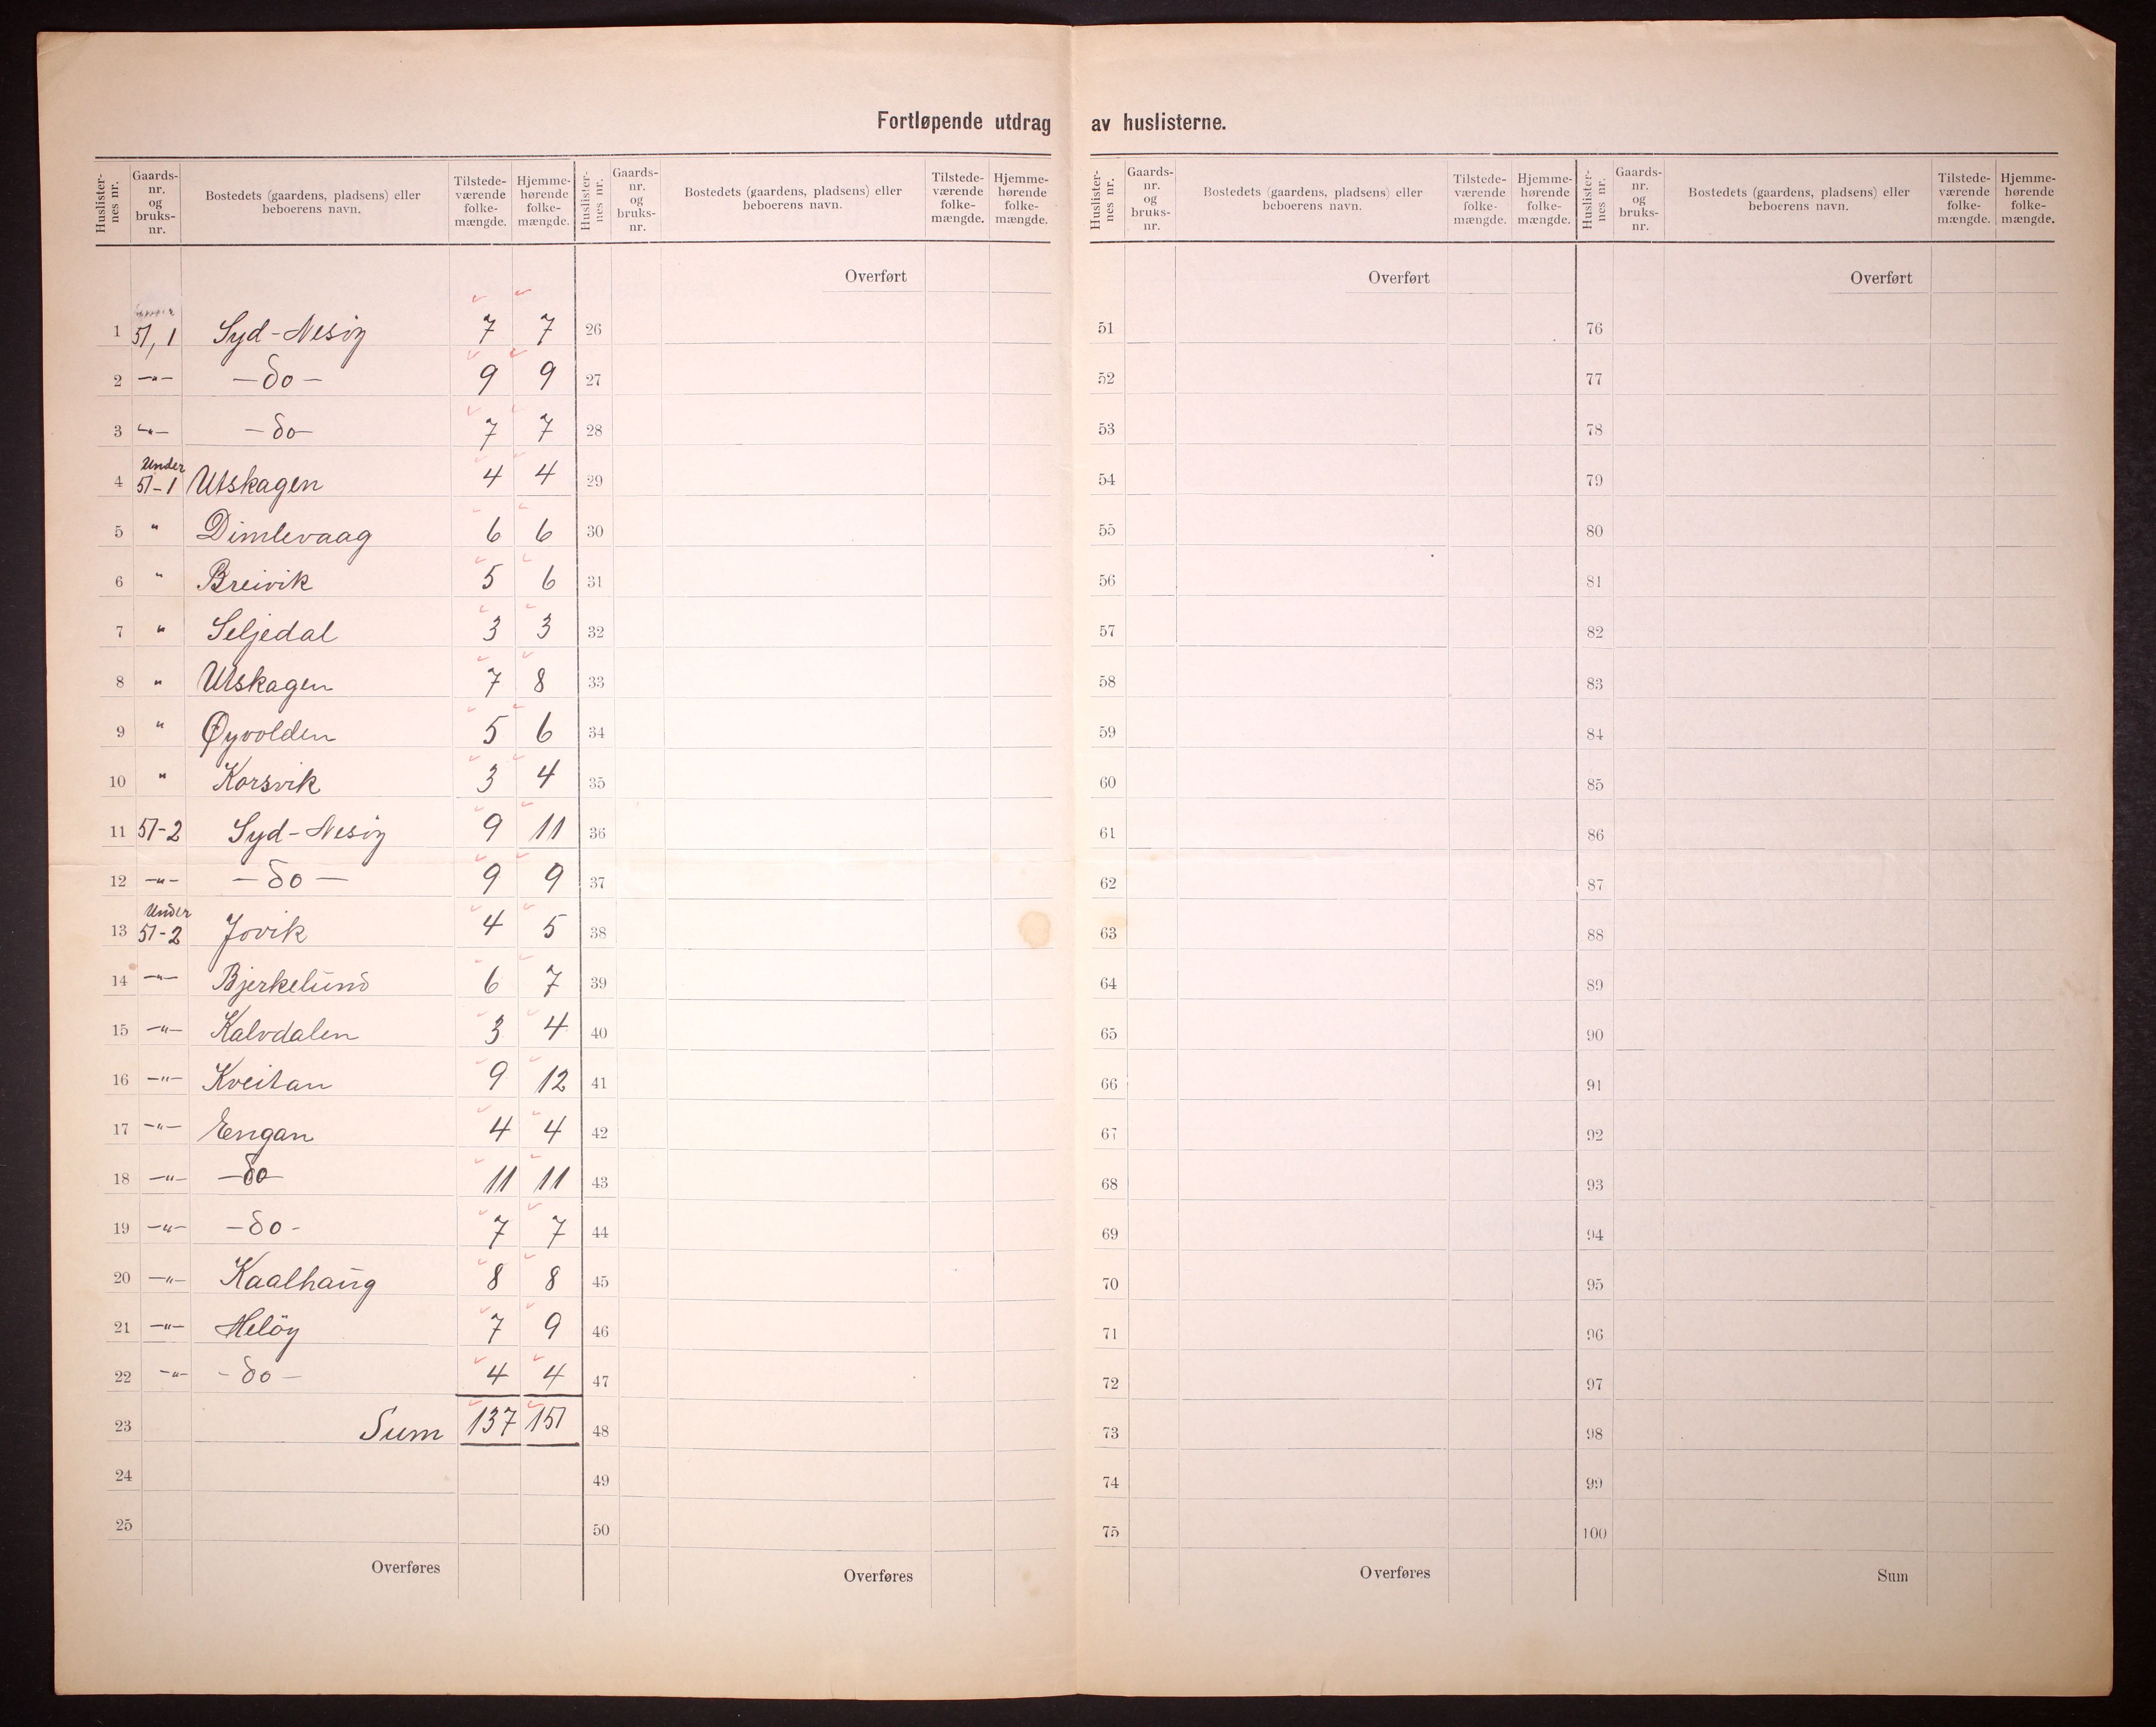 Fortløpende utdrag av huslisterne.
Huslister-nes nr. | Gaards-nr. og bruks-nr. | Bostedets (gaardens, pladsens) eller beboerens navn. | Tilstede-værende folke-mængde. | Hjemme-hørende folke-mængde.
1 51,1 Syd-Nesöy 7 7
2 —"— —do— 9 9
3 —"— —do— 7 7
4 Under 51-1 Utskagen 4 4
5 " Dimlevaag 6 6
6 " Breivik 5 6
7 " Seljedal 3 3
8 " Utskagen 7 8
9 " Øyvolden 5 6
10 " Korsvik 3 4
11 51-2 Syd-Nesöy 9 11
12 —"— —do— 9 9
13 Under 51-2 Jovik 4 5
14 —"— Bjerkelund 6 7
15 —"— Kalvdalen 3 4
16 —"— Kveitan 9 12
17 —"— Engan 4 4
18 —"— —do— 11 11
19 —"— —do- 7 7
20 —"— Kaalhaug 8 8
21 —"— Helöy 7 9
22 —"— -do— 4 4
23 Sum 137 151
24
25
Overføres
Huslister-nes nr. | Gaards-nr. og bruks-nr. | Bostedets (gaardens, pladsens) eller beboerens navn. | Tilstede-værende folke-mængde. | Hjemme-hørende folke-mængde.
Overført
26
27
28
29
30
31
32
33
34
35
36
37
38
39
40
41
42
43
44
45
46
47
48
49
50
Overføres
Huslister-nes nr. | Gaards-nr. og bruks-nr. | Bostedets (gaardens, pladsens) eller beboerens navn. | Tilstede-værende folke-mængde. | Hjemme-hørende folke-mængde.
Overført
51
52
53
54
55
56
57
58
59
60
61
62
63
64
65
66
67
68
69
70
71
72
73
74
75
Overføres
Huslister-nes nr. | Gaards-nr. og bruks-nr. | Bostedets (gaardens, pladsens) eller beboerens navn. | Tilstede-værende folke-mængde. | Hjemme-hørende folke-mængde.
Overført
76
77
78
79
80
81
82
83
84
85
86
87
88
89
90
91
92
93
94
95
96
97
98
99
100
Sum